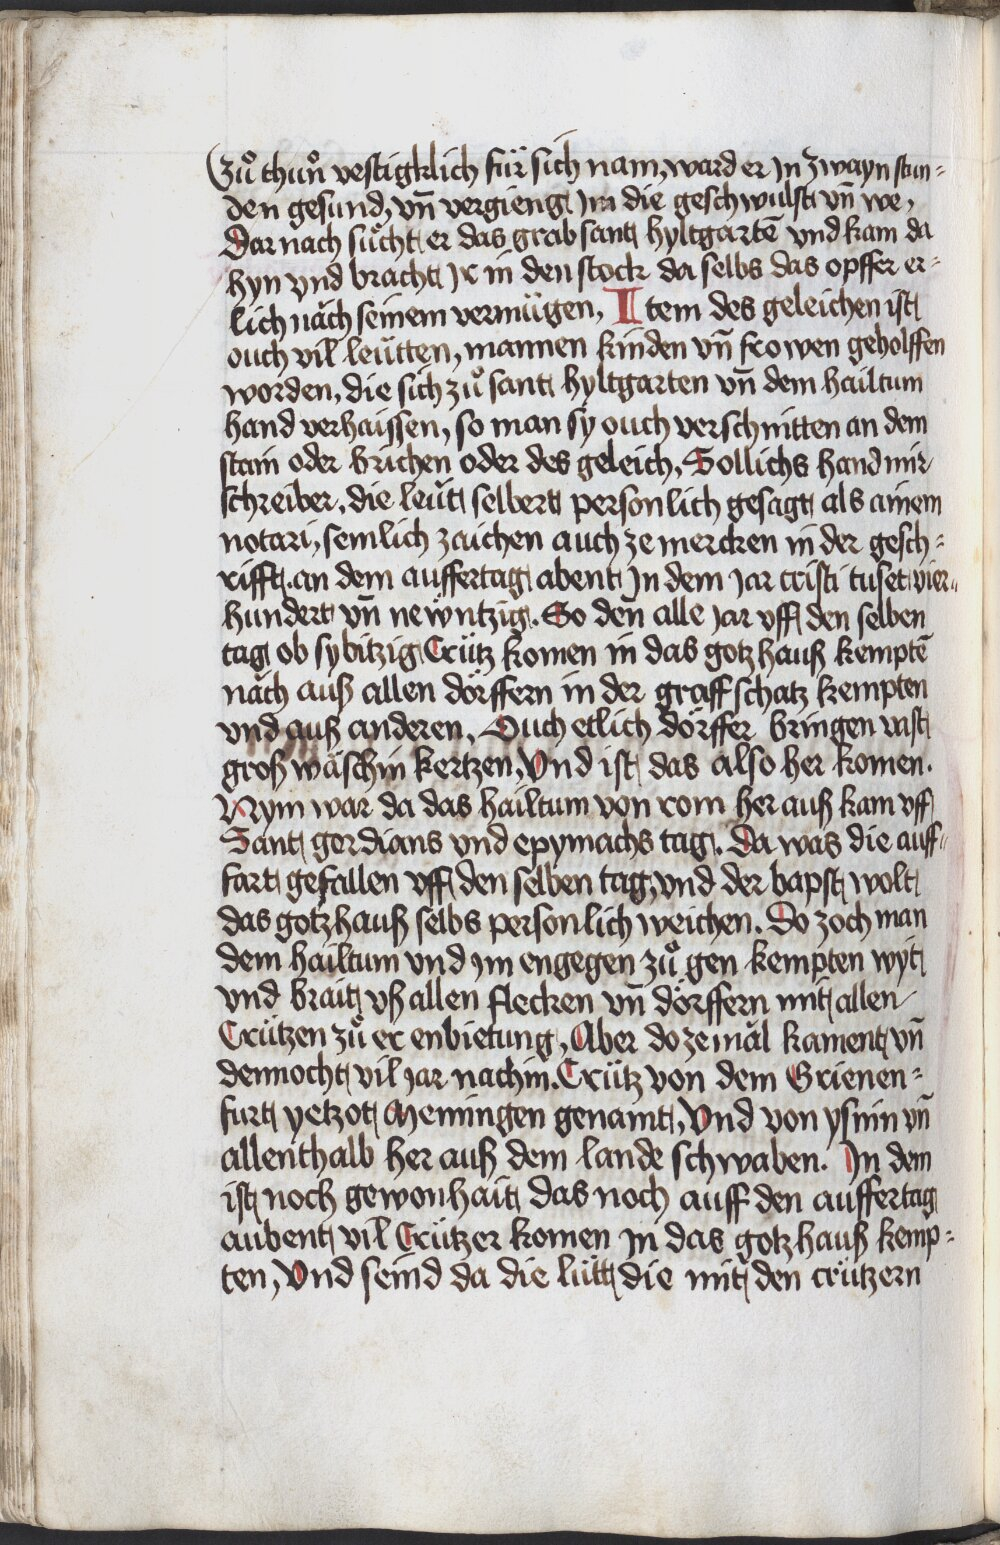 Zuͦ thuͦn vestigklich für sich nam, ward er jn zwayn stun-
den gesund, vn̄ vergieng jm die geschwulst vn̄ we,
Dar nach suͦcht er das grab sant hyltgartē vnd kam da
hyn vnd bracht jr in den stock da selbs das opffer er-
lich näch seinem vermügen, Item des geleichen ist
ouch vil leütten, mannen kinden vn̄ frowen geholffen
worden, die sich zuͦ sant hyltgarten vn̄ dem hailtum
hand verhaissen, so man sy ouch verschnitten an dem
stain oder brichen oder des geleich, Sollichs hand mir
schreiber, die leüt selbert personlich gesagt als ainem
notari, semlich zaichen auch ze mercken in der gesch-
rifft. an dem auffertag abent jn dem jar cristi tuset vier-
hundert vn̄ newntzig. So den alle jar vff den selben
tag ob sybitzig Crütz komen in das gotzhauß kemptē
näch auß allen dörffern in der graffschatz kempten
vnd auß anderen. Ouch etlich dörffer bringen vast
groß wäschin kertzen, Vnd ist das also her komen.
Nym war da das hailtum von rom her auß kam vff
Sant gordians vnd epymachs tag. Da was die auff-
fart gefallen vff den selben tag, vnd der bapst wolt
das gotzhauß selbs personlich weichen. Do zoch man
dem hailtum vnd ym engegen zuͦ gen kempten wyt
vnd brait vß allen flecken vn̄ dörffern mit allen
Crützen zuͦ er enbietung, Aber do ze mäl kament vn̄
dennocht vil jar nachin. Crütz von dem Grienen-
furt yetzot Memingen genamt, Vnd von ysnin vn̄
allenthalb her auß dem lande schwaben. In dem
ist noch gewonhait das noch auff den auffertag
aubent vil Crützer komen jn das gotzhauß kemp-
ten, Vnd seind da die lütt die mit den crützern